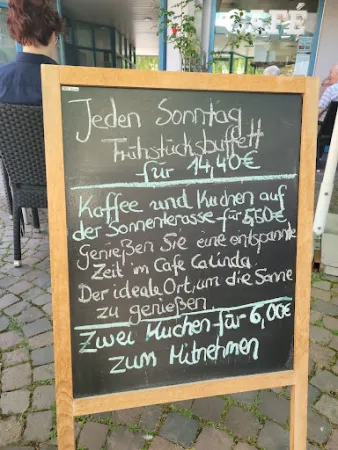 CAFÉ
Jeden Sonntag
Frühstücksbuffett
für 14,40€
Kaffee und Kuchen auf
der Sonnenterasse für 5,50€
Genießen Sie eine entspannte
Zeit im Cafe Calinda.
Der ideale Ort, um die Sonne
zu genießen.
Zwei Kuchen für 6,00€
zum Mitnehmen